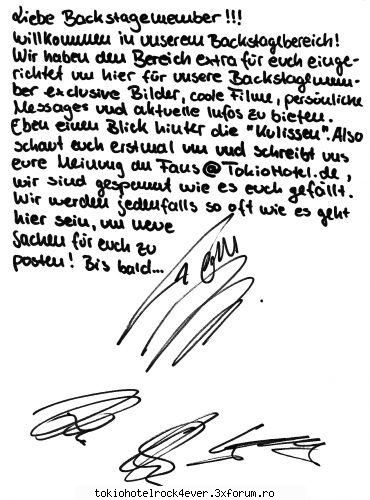 Liebe Backstagemember !!!
Willkommen in unserem Backstagebereich!
Wir haben den Bereich extra für euch einge-
richtet um hier für unsere Backstagemem-
ber exclusive Bilder, coole Filme, persönliche
Messages und aktuelle Infos zu bieten.
Eben einen Blick hinter die "Kulissen". Also
schaut euch erstmal um und schreibt uns
eure Meinung an Fans@TokioHotel.de,
wir sind gespannt wie es euch gefällt.
Wir werden jedenfalls so oft wie es geht
hier sein, um neue
Sachen für euch zu
posten! Bis bald...
tokiohotelrock4ever.3xforum.ro